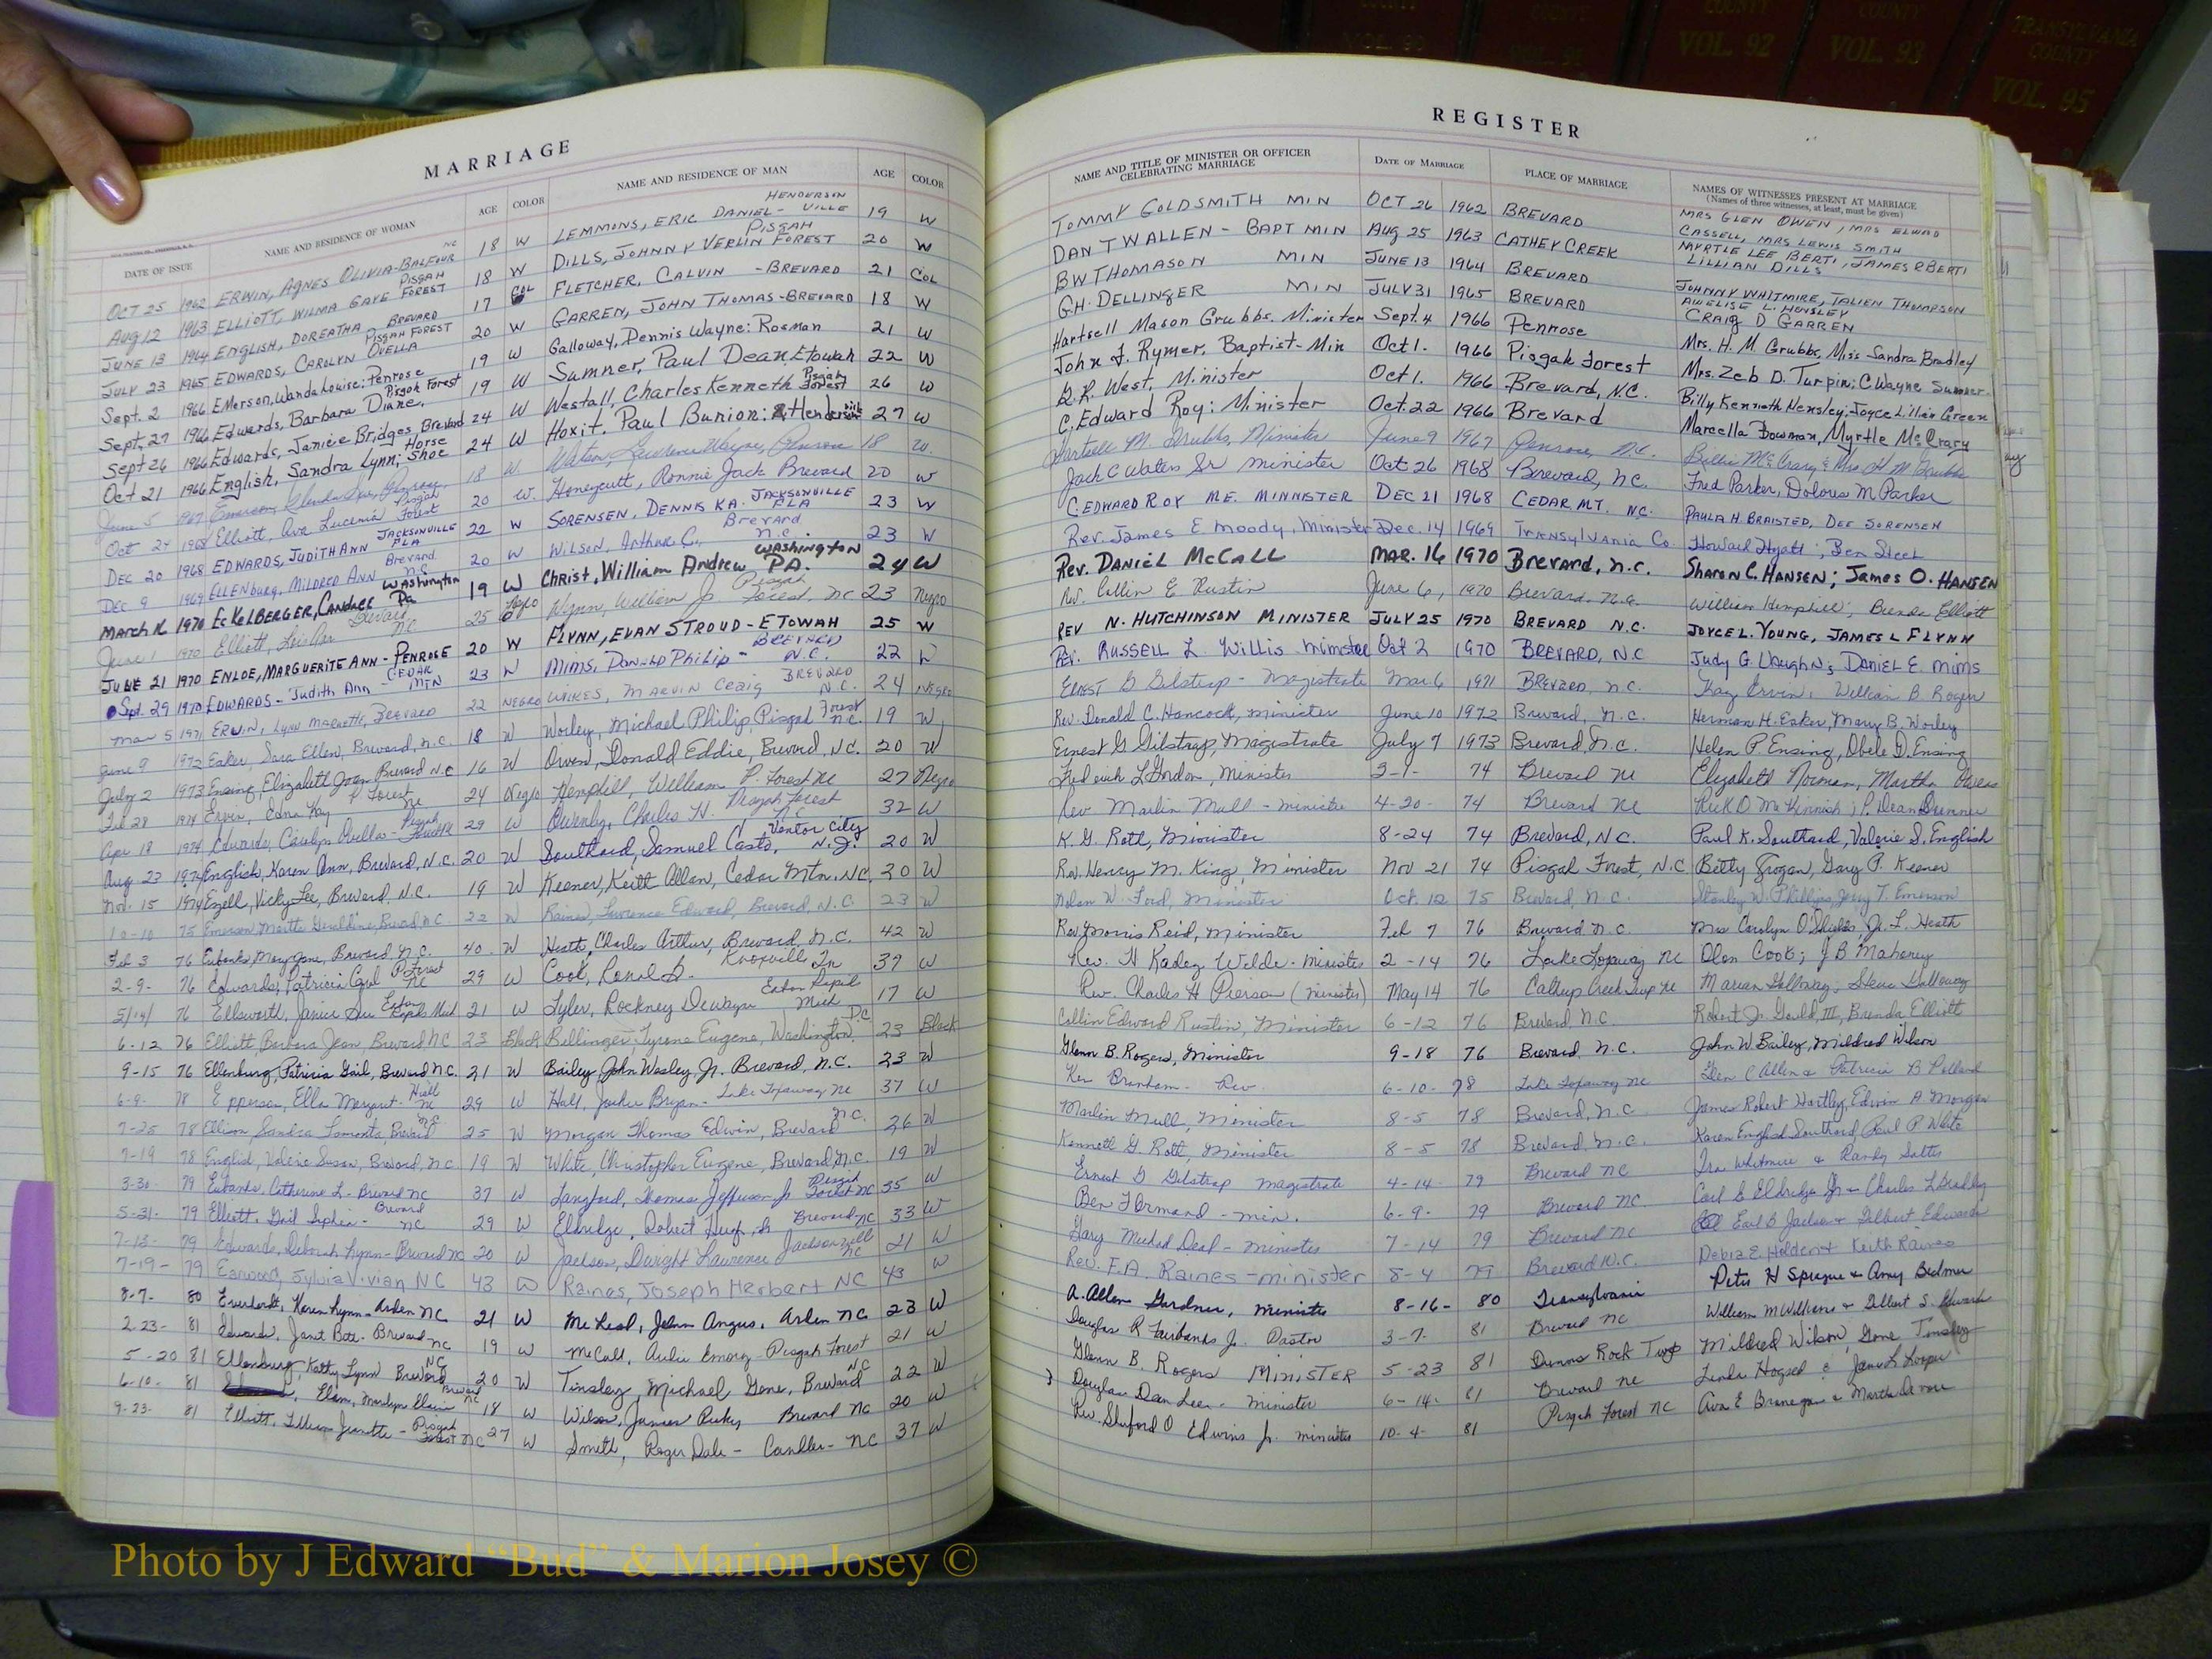 COUNTY
VOL. 92
COUNTY
VOL. 93
TRANSYLVANIA
COUNTY
VOL. 95
MARRIAGE
DATE OF ISSUE NAME AND RESIDENCE OF WOMAN AGE COLOR NAME AND RESIDENCE OF MAN AGE COLOR
OCT 25 1962 ERWIN, AGNES OLIVIA-BALFOUR NC 18 W LEMMONS, ERIC DANIEL-HENDERSONVILLE 19 W
AUG 12 1963 ELLIOTT, WILMA GAYE PISGAH FOREST 18 W DILLS, JOHNNY VERLIN PISGAH FOREST 20 W
JUNE 13 1964 ENGLISH, DOREATHA BREVARD 17 COL FLETCHER, CALVIN - BREVARD 21 COL
JULY 23 1965 EDWARDS, CAROLYN OVELLA PISGAH FOREST 20 W GARREN, JOHN THOMAS-BREVARD 18 W
Sept. 2 1966 EMerson, Wanda Louise: Penrose 19 W Galloway, Dennis Wayne: Rosman 21 W
Sept. 27 1966 Edwards, Barbara Diane, Pisgah Forest 19 W Sumner, Paul Dean Etowah 22 W
Sept 26 1966 Edwards, Janice Bridges Brevard 24 W Westall, Charles Kenneth Pisgah Forest 26 W
Oct 21 1966 English, Sandra Lynn; Horse Shoe 24 W Hoxit, Paul Bunion: Hendersonville 27 W
June 5 1967 Emerson, 18 W. Watson, Lawrence Wayne, Penrose 18 W.
Oct 24 1968 Elliott, Ava Lucenia Pisgah Forest 20 W. Honeycutt, Ronnie Jack Brevard 20 W
DEC 20 1968 EDWARDS, JUDITH ANN JACKSONVILLE FLA 22 W SORENSEN, DENNIS KA. JACKSONVILLE FLA 23 W
DEC 9 1969 ELLENburg, MILDRED ANN Brevard N.C. 20 W WILSON, Arthur C., Brevard N.C. 23 W
March 16 1970 EcKelBERGER, CANDACE Washington Pa 19 W Christ, William Andrew WASHINGTON PA. 24 W
June 1 1970 Elliott, Brevard NC 25 Negro Wynn, William Jr Pisgah Forest, NC 23 Negro
JULE 21 1970 ENLOE, MARGUERITE ANN - PENROSE 20 W FLYNN, EVAN STROUD - ETOWAH 25 W
Sept. 29 1970 EDWARDS - Judith Ann - CEDAR MTN 23 W MIMS, Donald Philip - BREVARD N.C. 22 W
Mar 5 1971 ERWIN, LYNN MARNETTE, BREVARD 22 NEGRO WIKES, MARVIN CRAIG BREVARD N.C. 24 NEGRO
June 9 1972 Eaker, Sara Ellen, Brevard, N.C. 18 W Worley, Michael Philip, Pisgah Forest N.C. 19 W
July 2 1973 Ensing, Elizabeth Joan Brevard N.C 16 W Owen, Donald Eddie, Brevard, N.C. 20 W
Feb 28 1974 Ervin, Edna Kay P. Forest NC 24 Negro Hemphill, William P. Forest NC 27 Negro
Apr 18 1974 Edwards, Carolyn Ovella - Pisgah Forest NC 29 W Quinby, Charles H. Pisgah Forest NC 32 W
Aug 23 1974 English, Karen Ann, Brevard, N.C. 20 W Southard, Samuel Casto, Ventor City N.J. 20 W
Nov. 15 1974 Ezell, Vicky Lee, Brevard, N.C. 19 W Keener, Keith Allan, Cedar Mtn. NC, 20 W
10-10 75 Emerson, Geraldine, Brevard N.C 22 W Raines, Lawrence Edward, Brevard, N.C. 23 W
Feb 3 76 Eubanks, Mary Jane, Brevard, N.C. 40 W Heath, Charles Arthur, Brevard, N.C. 42 W
2-9- 76 Edwards, Patricia Carol P. Forest NC 29 W Cook, Ronal D. Knoxville Tn 37 W
5/14/ 76 Ellsworth, Janice Sue Eaton Rapids Mich 21 W Tyler, Rockney Dewayn Eaton Rapid Mich 17 W
6-12 76 Elliott, Barbara Jean, Brevard NC 23 Black Bellinger, Tyrone Eugene, Washington, D.C. 23 Black
9-15 76 Ellenburg, Patricia Gail, Brevard N.C. 21 W Bailey, John Wesley, Jr. Brevard, N.C. 23 W
6-9- 78 Epperson, Ella Margaret - NC 29 W Hall, Bryan - Lake Toxaway NC 37 W
7-25 78 Ellison, Sandra Lamonta, Brevard N.C. 25 W Morgan Thomas Edwin, Brevard N.C. 26 W
7-19 78 English, Valerie Susan, Brevard, NC 19 W White, Christopher Eugene, Brevard, N.C. 19 W
3-30- 79 Eubanks, Catherine L - Brevard NC 37 W Langford, Thomas Jefferson Jr Pisgah Forest NC 35 W
5-31- 79 Elliott, Gail Sephia - Brevard NC 29 W Eldridge, Robert Hugh, Jr Brevard NC 33 W
7-13- 79 Edwards, Deborah Lynn - Brevard NC 20 W Jackson, Dwight Lawrence Jacksonville NC 21 W
7-19- 79 Earwood, Sylvia Vivian NC 43 W Raines, Joseph Herbert NC 43 W
8-7- 80 Everhardt, Karen Lynn - Arden NC 21 W McLeod, John Angus, Arden NC 23 W
2.23- 81 Edwards, Janet Bott - Brevard NC 19 W McCall, Emory - Pisgah Forest NC 21 W
5-20 81 Ellenburg, Katy Lynn Brevard NC 20 W Tinsley, Michael Gene, Brevard 22 W
6-10- 81 Elam, Marilyn Elain Brevard NC 18 W Wilson, James Ricky Brevard NC 20 W
9-23- 81 Elliott, Lillian Jeanette - Pisgah Forest NC 27 W Smith, Roger Dale - Candler - NC 37 W
REGISTER
NAME AND TITLE OF MINISTER OR OFFICER CELEBRATING MARRIAGE DATE OF MARRIAGE PLACE OF MARRIAGE NAMES OF WITNESSES PRESENT AT MARRIAGE
(Names of three witnesses, at least, must be given)
TOMMY GOLDSMITH MIN OCT 26 1962 BREVARD MRS GLEN OWEN, MRS ELWAD CASSELL, MRS LEWIS SMITH
DAN T WALLEN - BAPT MIN AUG 25 1963 CATHEY CREEK MYRTLE LEE BERTI, JAMES R BERTI LILLIAN DILLS
BW THOMASON MIN JUNE 13 1964 BREVARD JOHNNY WHITMIRE, TALIEN THOMPSON
G.H. DELLINGER MIN JULY 31 1965 BREVARD AWELISE L. HENSLEY CRAIG D GARREN
Hartsell Mason Grubbs. Minister Sept. 4 1966 Penrose Mrs. H. M. Grubbs, Miss Sandra Bradley
John F. Rymer, Baptist-Min Oct 1. 1966 Pisgah Forest Mrs. Zeb D. Turpin; C. Wayne Sumner.
G.R. West, Minister Oct 1. 1966 Brevard, N.C. Billy Kenneth Hensley; Joyce Lillian Green
C. Edward Roy: Minister Oct. 22 1966 Brevard Marcella Bowman, Myrtle McCrary
Hartselle M. Grubbs, Minister June 9 1967 Penrose, N.C. Billie McCrary & Mrs H M Grubbs
Jack C Waters Sr minister Oct 26 1968 Brevard, N.C. Fred Parker, Dolores M Parker
C. EDWARD ROY M.E. MINNISTER DEC 21 1968 CEDAR MT. N.C. PAULA H. BRAISTED, DEE SORENSEN
Rev. James E Moody, Minister Dec. 14 1969 TranSylvania Co. Howard Hyatt; Ben Steel
Rev. DANIEL McCALL MAR. 16 1970 Brevard, N.C. Sharon C. HANSEN; James O. HANSEN
Rev. Collin E Rustin June 6, 1970 Brevard, N.C. William Hemphill; Brenda Elliott
REV N. HUTCHINSON MINISTER JULY 25 1970 BREVARD N.C. JOYCE L. YOUNG, JAMES L FLYNN
REV. RUSSELL L Willis Minister Oct 2 1970 BREVARD, N.C Judy G. Vaughn; DANIEL E. MIMS
ERNEST G Gilstrap - Magistrate Mar 6 1971 BREVARD, N.C. Kay Ervin, William B. Roger
Rev. Donald C. Hancock, minister June 10 1972 Brevard, N.C. Herman H. Eaker, Mary B. Worley
Ernest G Gilstrap, Magistrate July 7 1973 Brevard, N.C. Helen P Ensing, Obele D. Ensing
Fredrick L Gordon, Minister 3-1- 74 Brevard NC Elizabeth Norman, Martha Owens
Rev. Marlin Mull - minister 4-20- 74 Brevard NC Rick O McKinnish; P. Dean Sumner
K. G. Rott, Minister 8-24 74 Brevard, N.C. Paul K. Southard, Valerie S. English
Rev. Henry M. King, Minister Nov 21 74 Pisgah Forest, N.C Betty Grogan, Gary P. Keener
Nolan W. Ford, Minister Oct. 12 75 Brevard, N.C. Stanley W. Phillips, Jerry T. Emerson
Rev. Morris Reid, Minister Feb 7 76 Brevard N.C. Mrs Carolyn O'Shields, Jr. L. Heath
Rev. H Kadey Welde - minister 2-14 76 Lake Toxaway NC Olan Cook; J B Mahoney
Rev. Charles H Pierson (minister) May 14 76 Catheys Creek Twp NC Marian Galloway; Steve Galloway
Collin Edward Rustin, Minister 6-12 76 Brevard, N.C. Robert Jr. Gould, III, Brenda Elliott
Glenn B. Rogers, Minister 9-18 76 Brevard, N.C. John W. Bailey, Mildred Wilson
Ken Branham - Rev. 6-10- 78 Lake Toxaway NC Glen C Allen & Patricia B
Marlin Mull, Minister 8-5 78 Brevard, N.C James Robert Hartley, Edwin A Morgan
Kenneth G. Rott, Minister 8-5 78 Brevard, N.C. Karen English Southard, Paul P. White
Ernest G Gilstrap magistrate 4-14- 79 Brevard NC Ira Whitmire & Randy
Ben F Ormand - min. 6-9- 79 Brevard NC Carl G Eldridge Jr & Charles L Bradley
Gary Michael Deal - minister 7-14 79 Brevard NC Earl B Jackson & Gilbert Edwards
Rev. F.A. Raines - minister 8-4 79 Brevard N.C. Debra E. Holden & Keith Raines
A. Allen Gardner, Minister 8-16- 80 Transylvania Peter H Sprague & Amy Bedmer
Douglas R Fairbanks Jr. Pastor 3-7- 81 Brevard NC William M Williams & Gilbert S. Edwards
Glenn B. Rogers MINISTER 5-23 81 Dunns Rock Twp Mildred Wilson, Gene Tinsley
Douglas Dean Leer - minister 6-14- 81 Brevard NC Linda Hogsed & Jane L Looper
Rev. Shuford O Edwins Jr. minister 10-4- 81 Pisgah Forest NC Ava E Branegan & Martha
Photo by J Edward "Bud" & Marion Josey ©